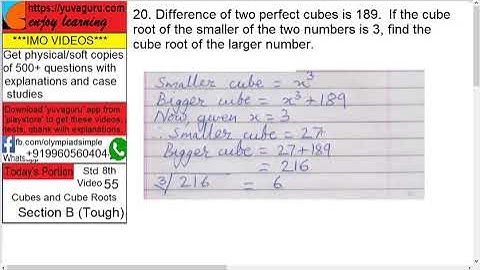 https://yuvaguru.com
enjoy learning
***IMO VIDEOS***
Get physical/soft copies
of 500+ questions with
explanations and case
studies
Download 'yuvaguru' app from
'playstore' to get these videos,
tests, gbank with explanations.
fb.com/olympiadsimple
Whatsapp
+919960560404
Today's Portion
Std 8th
Video 55
Cubes and Cube Roots
Section B (Tough)
20. Difference of two perfect cubes is 189. If the cube
root of the smaller of the two numbers is 3, find the
cube root of the larger number.
Smaller cube = x³
Bigger cube = x³+189
Now, given x = 3
∴ Smaller cube = 27
Bigger cube = 27+189
= 216
∛216 = 6